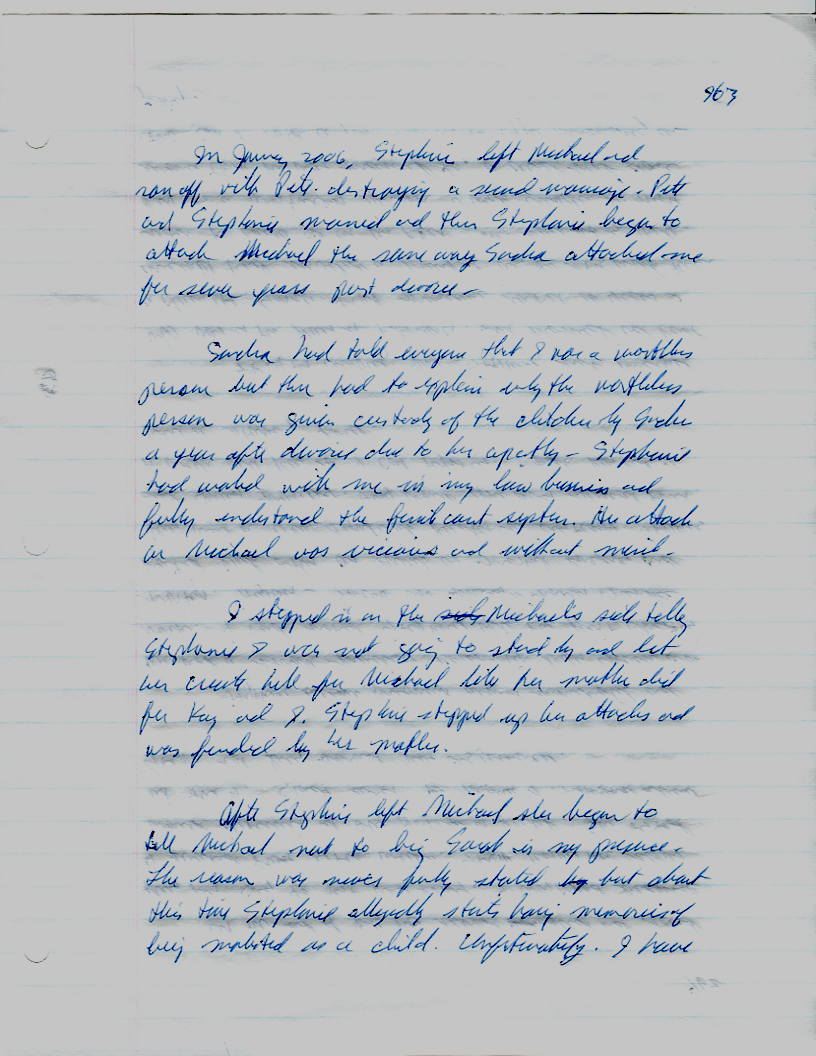 963
In January 2006, Stephanie left Michael and
ran off with Pete destroying a second marriage. Pete
and Stephanie married and then Stephanie began to
attack Michael the same way Sandra attacked me
for seven years post divorce.
Sandra had told everyone that I was a worthless
person but then had to explain why the worthless
person was given custody of the children by Sandra
a year after divorce due to her apathy. Stephanie
had worked with me in my law business and
fully understand the family court system. Her attack
on Michael was vicious and without merit.
I stepped in on the Michael's side telling
Stephanie I was not going to stand by and let
her create hell for Michael like her mother did
for Kay and I. Stephanie stepped up her attacks and
was funded by her mother.
After Stephanie left Michael she began to
tell Michael not to bring Sarah in my presence.
The reason was never fully stated but about
this time Stephanie allegedly starts having memories of
being molested as a child. Unfortunately. I have